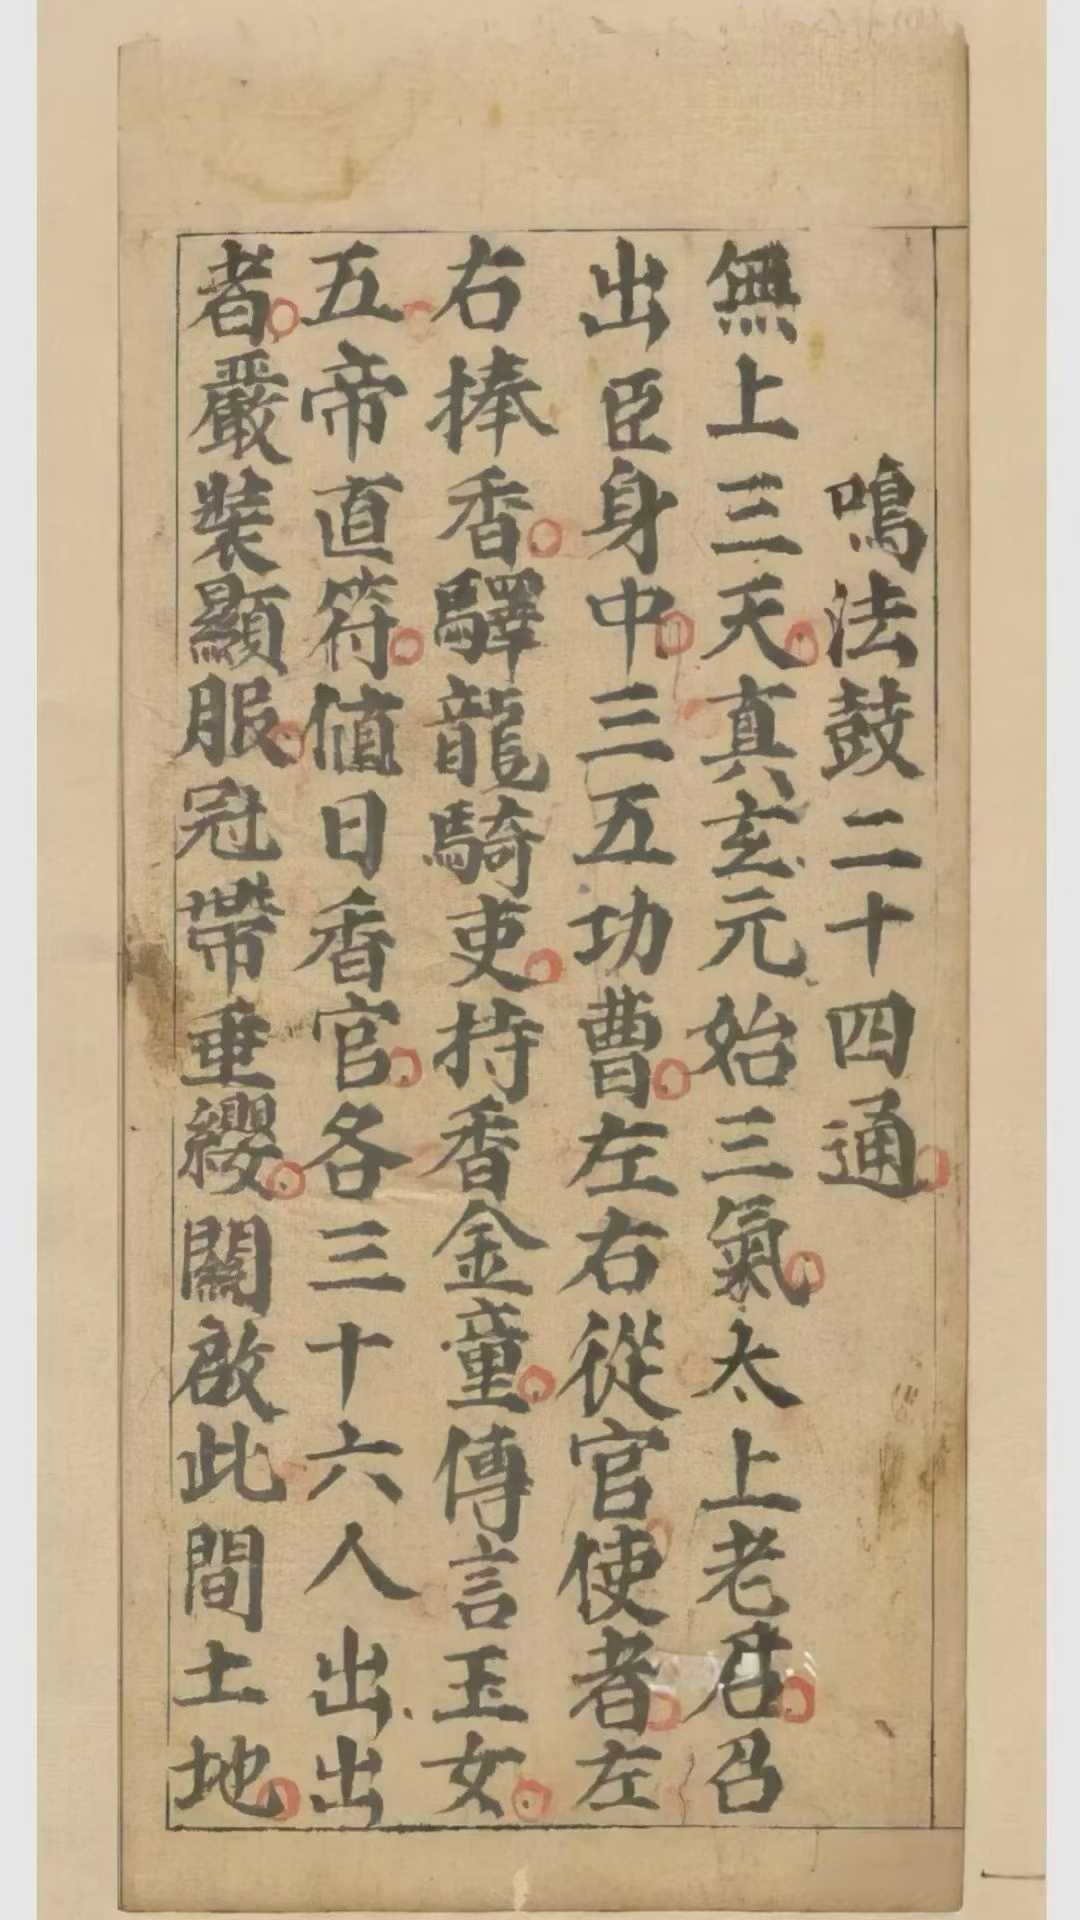 鳴法鼓二十四通
無上三天真玄元始三氣太上老君召
出臣身中三五功曹左右從官使者左
右捧香驛龍騎吏持香金童傳言玉女
五帝直符值日香官各三十六人出出
者嚴裝顯服冠帶垂纓關啟此間土地